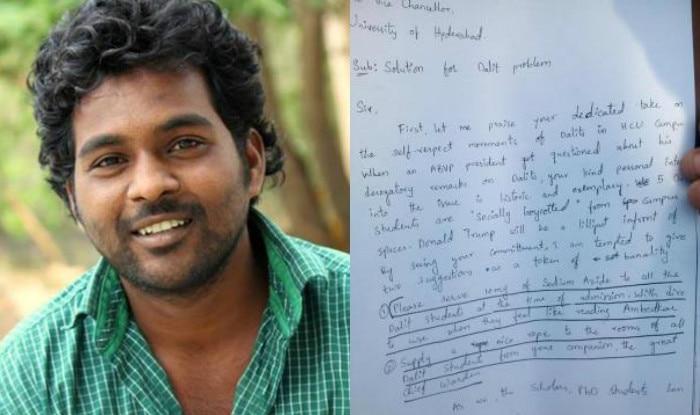 Vice Chancellor,
University of Hyderabad.
Sub: Solution for Dalit problem
Sir,
First, let me praise your dedicated take on
the self-respect movements of Dalits in HCU Campus
When an ABVP president got questioned about his
derogatory remarks on Dalits, your kind personal
into the issue is historic and exemplary. 5
students are "socially boycotted" from campus
spaces. Donald Trump will be a lilliput infront of
By seeing your commitment, I am tempted to give
two suggestions as a token of banality
① Please serve 10mg of Sodium Azide to all the
Dalit students at the time of admission. With
to use when they feel like reading Ambedkar
② Supply a nice rope to the rooms of all
Dalit student from your companion, the great
chief warden
As we, the scholars, PhD students